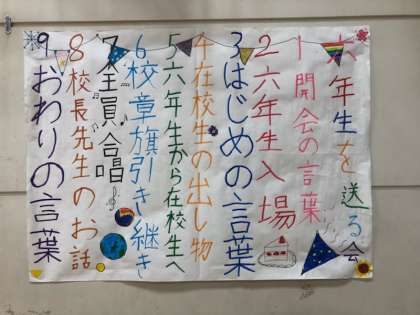 六年生を送る会
1開会の言葉
2六年生入場
3はじめの言葉
4在校生の出し物
5六年生から在校生へ
6校章旗引き継ぎ
7全員合唱
8校長先生のお話
9おわりの言葉